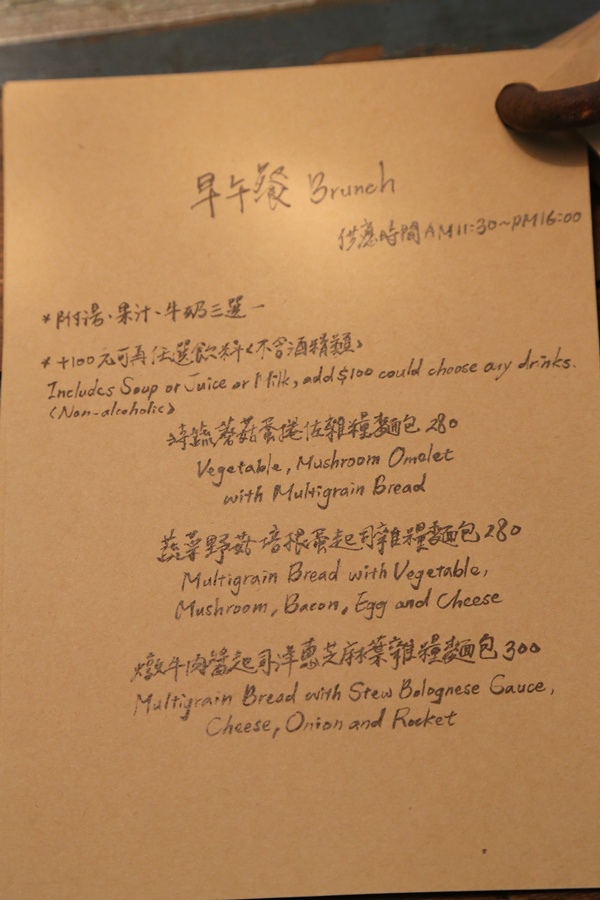 早午餐 Brunch
供應時間 AM11:30~PM16:00
*附湯、果汁、牛奶三選一
*+100元可再任選飲料<不含酒精類>
Includes Soup or Juice or Milk, add $100 could choose any drinks.
<Non-alcoholic>
時蔬蘑菇蛋捲佐雜糧麵包 280
Vegetable, Mushroom Omelet
with Multigrain Bread
蔬菜野菇培根蛋起司雜糧麵包 280
Multigrain Bread with Vegetable,
Mushroom, Bacon, Egg and Cheese
燉牛肉醬起司洋蔥芝麻葉雜糧麵包 300
Multigrain Bread with Stew Bolognese Sauce,
Cheese, Onion and Rocket